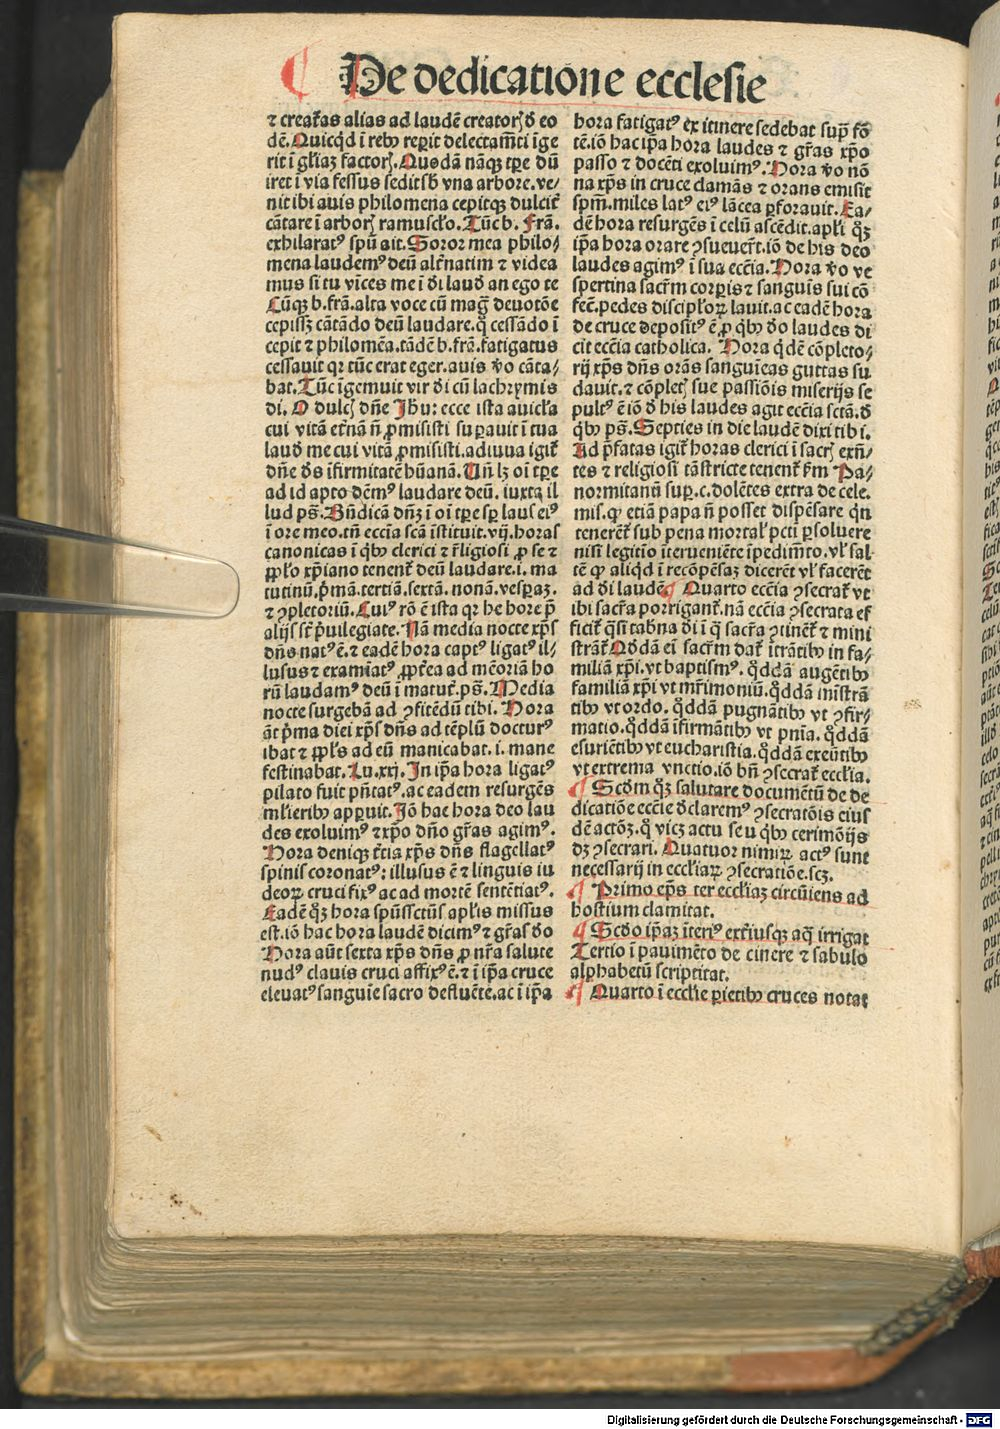 De dedicatione ecclesie
⁊ creat̃as alias ad laudē creatorꝭ ð eo
dē. Quicq̇d ĩ rebꝰ reꝑit delectam̃ti ĩge
rit ĩ gl̃iaꝫ factorꝭ. Quodā nāqꝫ tꝑe dũ
iret ĩ via fessus sedit sb̃ vna arbore. ve⸗
nit ibi auis philomena cepitqꝫ dulcit̃
cãtare ĩ arborꝭ ramusc̃lo. Tũc b. Frã.
exhilaratꝰ spũ ait. Soror mea philo⸗
mena laudemꝰ deũ alt̃natim ⁊ videa
mus si tu vĩces me ĩ ði laud̃ an ego te
Cũqꝫ b. frã. alta voce cũ mag̃ deuotõe
cepissꝫ cãtãdo deũ laudare. q̊ cessãdo ĩ
cepit ⁊ philomẽa. tãdẽ b. frã. fatigatus
cessauit qꝛ tũc erat eger. auis ṽo cãta⸗
bat. Tũc ĩgemuit vir ði cũ lachrymis
di. O dulcꝭ dñe Jhũ: ecce ista auicl̃a
cui vitã et̃nã ñ ꝓmisisti suꝑauit ĩ tua
laud̃ me cui vitã ꝓmisisti. adiuua igit̃
dñe ðs ĩfirmitatẽ hũanã. Uñ lꝫ oĩ tꝑe
ad id apto dẽmꝰ laudare deũ. iuxta il
lud pš. Bñdicã dñꝫ ĩ oĩ tꝑe sꝑ laus eiꝰ
ĩ ore meo. tñ ecc̃ia scã ĩstituit. vij. horas
canonicas ĩ q̇bꝰ clerici ⁊ r̃ligiosi ꝓ se ⁊
ꝓpl̃o xp̃iano tenent̃ deũ laudare. i. ma
tutinũ. p̃mã. tertiã. sextã. nonã. vesꝑaꝫ.
⁊ ꝯpletoriũ. Cuiꝰ rõ ẽ ista qꝛ he hore p̃
alijs st̃ p̃uilegiate. Nã media nocte xp̃s
dñs natꝰ ẽ. ⁊ eadẽ hora captꝰ ligatꝰ il⸗
lusus ⁊ examĩatꝰ, ꝓpt̃ea ad mẽoriã ho
rũ laudamꝰ deũ ĩ matut̃. pš. Media
nocte surgebã ad ꝯfitẽdũ tibi. Hora
aũt p̃ma diei xp̃s dñs ad tẽplũ docturꝰ
ibat ⁊ ppl̃s ad eũ manicabat. i. mane
festinabat. Lu. xxj. In ip̃a hora ligatꝰ
pilato fuit p̃ñtatꝰ. ac eadem resurgẽs
ml̃ieribꝰ apꝑuit. Jõ hac hora deo lau
des exoluimꝰ ⁊ xp̃o dño gr̃as agimꝰ.
Hora deniqꝫ t̃tia xp̃s dñs flagellatꝰ
spinis coronatꝰ: illusus ẽ ⁊ linguis iu
deoꝝ crucifixꝰ ac ad mortẽ sentẽtiatꝰ.
Eadẽ q̊ꝫ hora spũssctũs apl̃is missus
est. iõ hac hora laudẽ dicimꝰ ⁊ gr̃as ðo
Hora aũt sexta xp̃s dñs ꝓ nr̃a salute
nudꝰ clauis cruci affixꝰ ẽ. ⁊ ĩ ip̃a cruce
eleuatꝰ sanguĩe sacro defluẽte. ac ĩ ip̃a
hora fatigatꝰ ex itinere sedebat suꝑ fõ
tẽ. iõ hac ip̃a hora laudes ⁊ gr̃as xp̃o
passo ⁊ docẽti exoluimꝰ. Hora ṽo nõ
na xp̃s in cruce clamãs ⁊ orans emisit
spm̃. miles latꝰ eiꝰ lãcea ꝑforauit. Ea⸗
dẽ hora resurgẽs ĩ celũ ascẽdit. apl̃i q̊ꝫ
ip̃a hora orare ꝯsueuer̃t. iõ de his deo
laudes agimꝰ ĩ sua ecc̃ia. Hora ṽo ve
spertina sacr̃m corꝑis ⁊ sanguĩs sui cõ
fec̃. pedes discipl̃oꝝ lauit. ac eadẽ hora
de cruce depositꝰ ẽ, ꝓ q̇bꝰ ðo laudes di
cit ecc̃ia catholica. Hora q̇dẽ cõpleto⸗
rij xp̃s dñs orãs sanguĩeas guttas su
dauit. ⁊ cõpletꝭ sue passiõis miserijs se
pultꝰ ẽ iõ ð his laudes agit ecc̃ia sctã. ð
q̇bꝰ pš. Septies in die laudẽ dixi tibi.
Ad p̃fatas igit̃ horas clerici ĩ sacrꝭ exñ⸗
tes ⁊ religiosi tã stricte tenent̃ ẜm Pa⸗
normitanũ suꝑ. c. dolẽtes extra de cele.
mis. ꝙ etiã papa ñ posset dispẽsare q̃n
tenerẽt̃ sub pena mortal̃ pcti ꝑsoluere
nisi legitĩo ĩterueniẽte ĩpedim̃to. vl̃ sal⸗
tẽ ꝙ aliq̇d ĩ recõpẽsaꝫ dicerẽt vl̃ facerẽt
ad ði laudẽ. Quarto ecc̃ia ꝯsecrat̃ vt
ibi sacr̃a porrigant̃. nã ecc̃ia ꝯsecrata ef
ficit̃ q̃si tab̃na ði ĩ q̃ sacr̃a ꝯtinẽt̃ ⁊ mini
strãt̃. Q̊dã eĩ sacr̃m dat̃ ĩtrãtibꝰ in fa⸗
miliã xp̃i. vt baptismꝰ. q̊ddã augẽtibꝰ
familiã xp̃i vt mr̃imoniũ. q̊ddã mĩstrã
tibꝰ vt ordo. q̊ddã pugnãtibꝰ vt ꝯfir⸗
matio. q̊ddã ĩfirmãtibꝰ vt pnĩa. q̊ddã
esuriẽtibꝰ vt eucharistia. q̊ddã exeũtibꝰ
vt extrema vnctio. iõ bñ ꝯsecrat̃ eccl̃ia.
¶ Scðm q̊ꝫ salutare documẽtũ de de
dicatiõe ecc̃ie ðclaremꝰ ꝯsecratõis eius
dẽ actõꝫ. q̊ vicꝫ actu seu q̇bꝰ cerimõijs
dꝫ ꝯsecrari. Quatuor nimiꝝ actꝰ sunt
necessarij in eccl̃iaꝝ ꝯsecratiõe. scꝫ.
¶ Primo ep̃s ter eccl̃iaꝫ circũiens ad
hostium clamitat.
¶ Scðo ip̃aꝫ iteriꝰ ext̃iusqꝫ aq̃ irrigat
Tertio ĩ pauimẽto de cinere ⁊ sabulo
alphabetũ scriptitat.
¶ Quarto ĩ eccl̃ie ꝑietibꝰ cruces notat
Digitalisierung gefördert durch die Deutsche Forschungsgemeinschaft - DFG